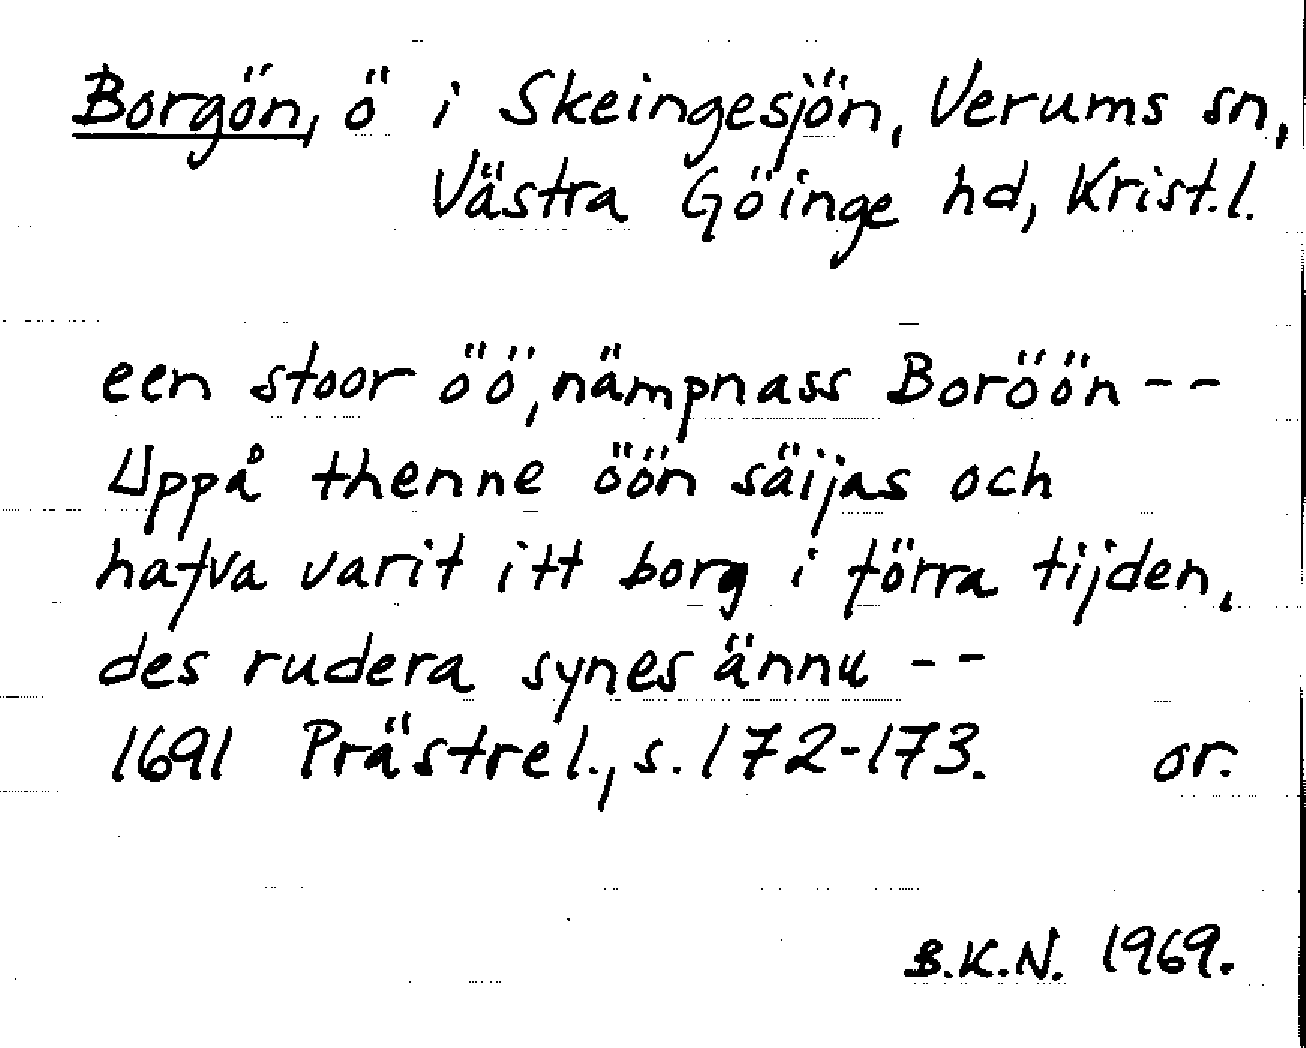 Borgön, ö i Skeingesjön, Verums sn,
Västra Göinge hd, Krist.l.
een stoor öö, nämpnass Boröön --
Uppå thenne öön säijas och
hafva varit itt borg i förra tijden,
des rudera synes ännu --
1691 Prästrel., s. 172-173. or.
B.K.N. 1969.